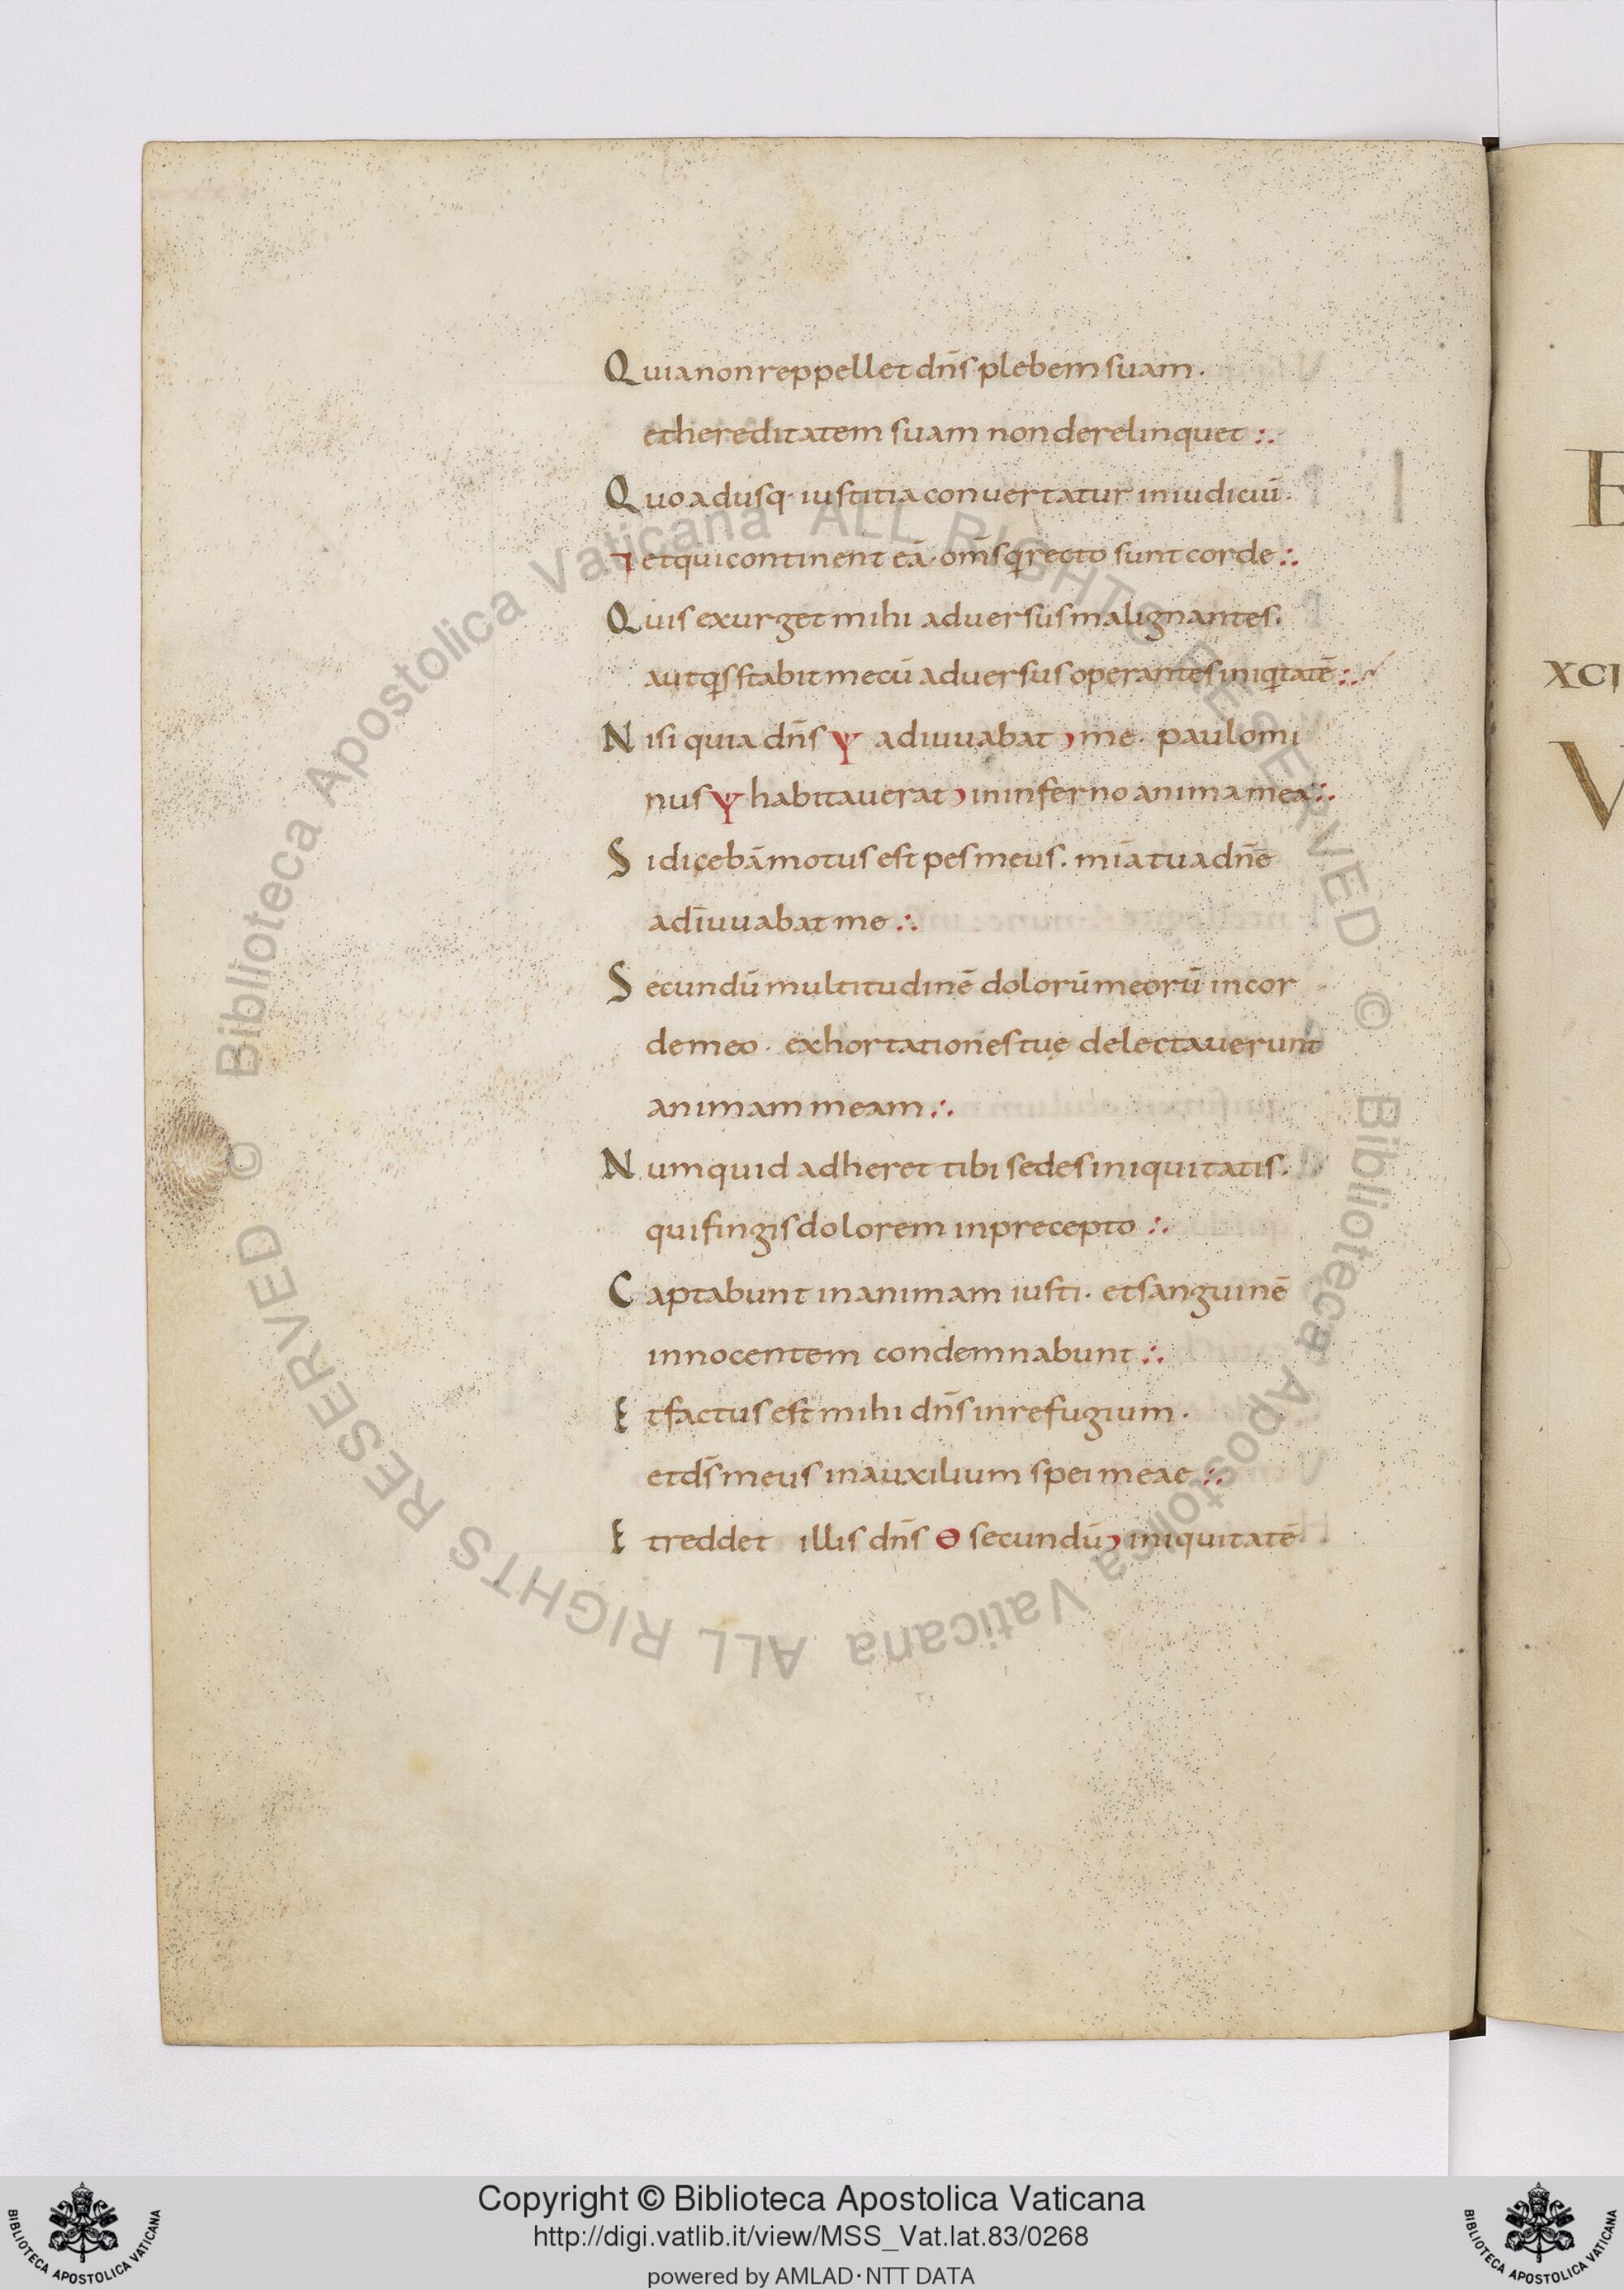 Quia non reppellet dn̄s plebem suam.
et hereditatem suam non derelinquet :.
Quo adusq· iustitia conuertatur in iudiciū.
⁊ et qui continent eā· om̄s q̄ recto sunt corde :.
Quis exurget mihi aduersus malignantes.
aut q̄s stabit mecū aduersus operantes iniq̄tatē :.
Nisi quia dn̄s ψ adiuuabat me. paulomi
nus ψ habitauerat in inferno anima mea :.
Si dicebā motus est pes meus. mīa tua dn̄e
adiuuabat me :.
Secundū multitudinē dolorū meorū in cor
de meo· exhortationes tuę delectauerunt
animam meam :.
Numquid adheret tibi sedes iniquitatis.
qui fingis dolorem in precepto :.
Captabunt in animam iusti. et sanguinē
innocentem condemnabunt :.
Et factus est mihi dn̄s in refugium.
et ds̄ meus in auxilium spei meae :.
Et reddet illis dn̄s ɵ secundū iniquitatē
E
XCI
V
© Biblioteca Apostolica Vaticana ALL RIGHTS RESERVED © Biblioteca Apostolica Vaticana ALL RIGHTS RESERVED
Copyright © Biblioteca Apostolica Vaticana
http://digi.vatlib.it/view/MSS_Vat.lat.83/0268
powered by AMLAD·NTT DATA
BIBLIOTECA APOSTOLICA VATICANA
BIBLIOTECA APOSTOLICA VATICANA